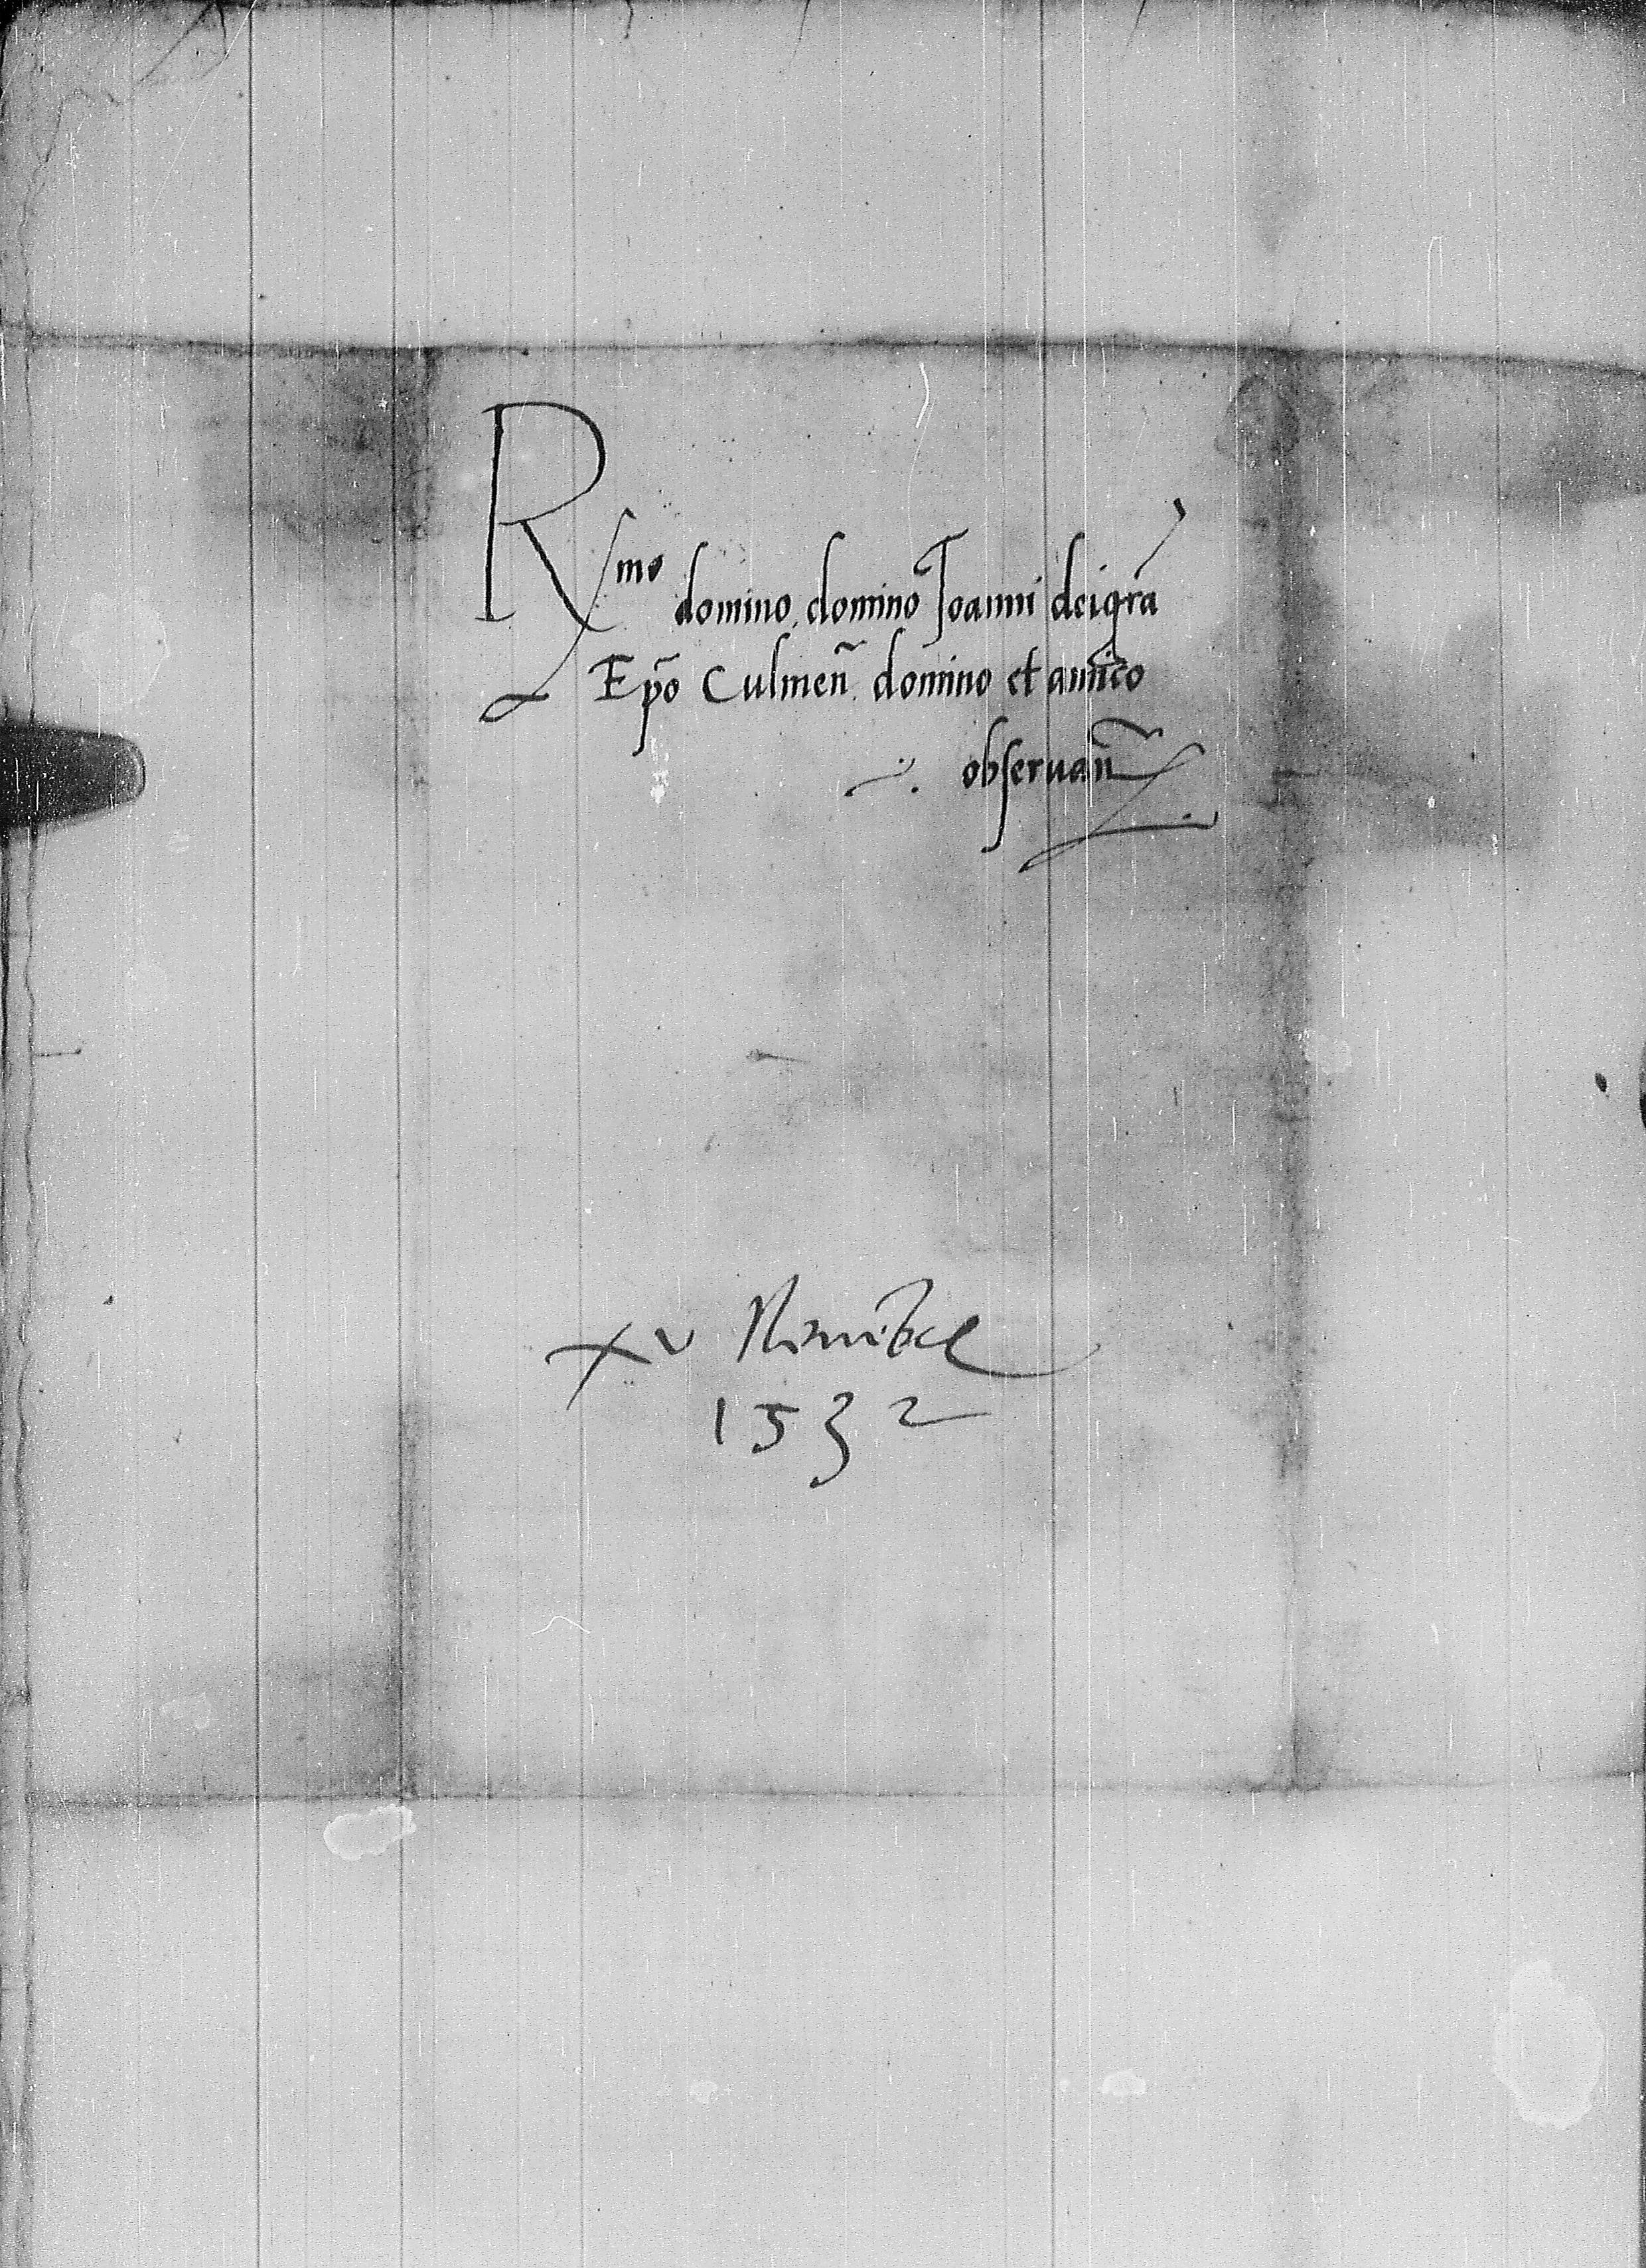 Rmo domino domino Joanni dei gr̃a
Ep̃o Culmeñ domino et amico
observañ
xv Novẽbr
1532